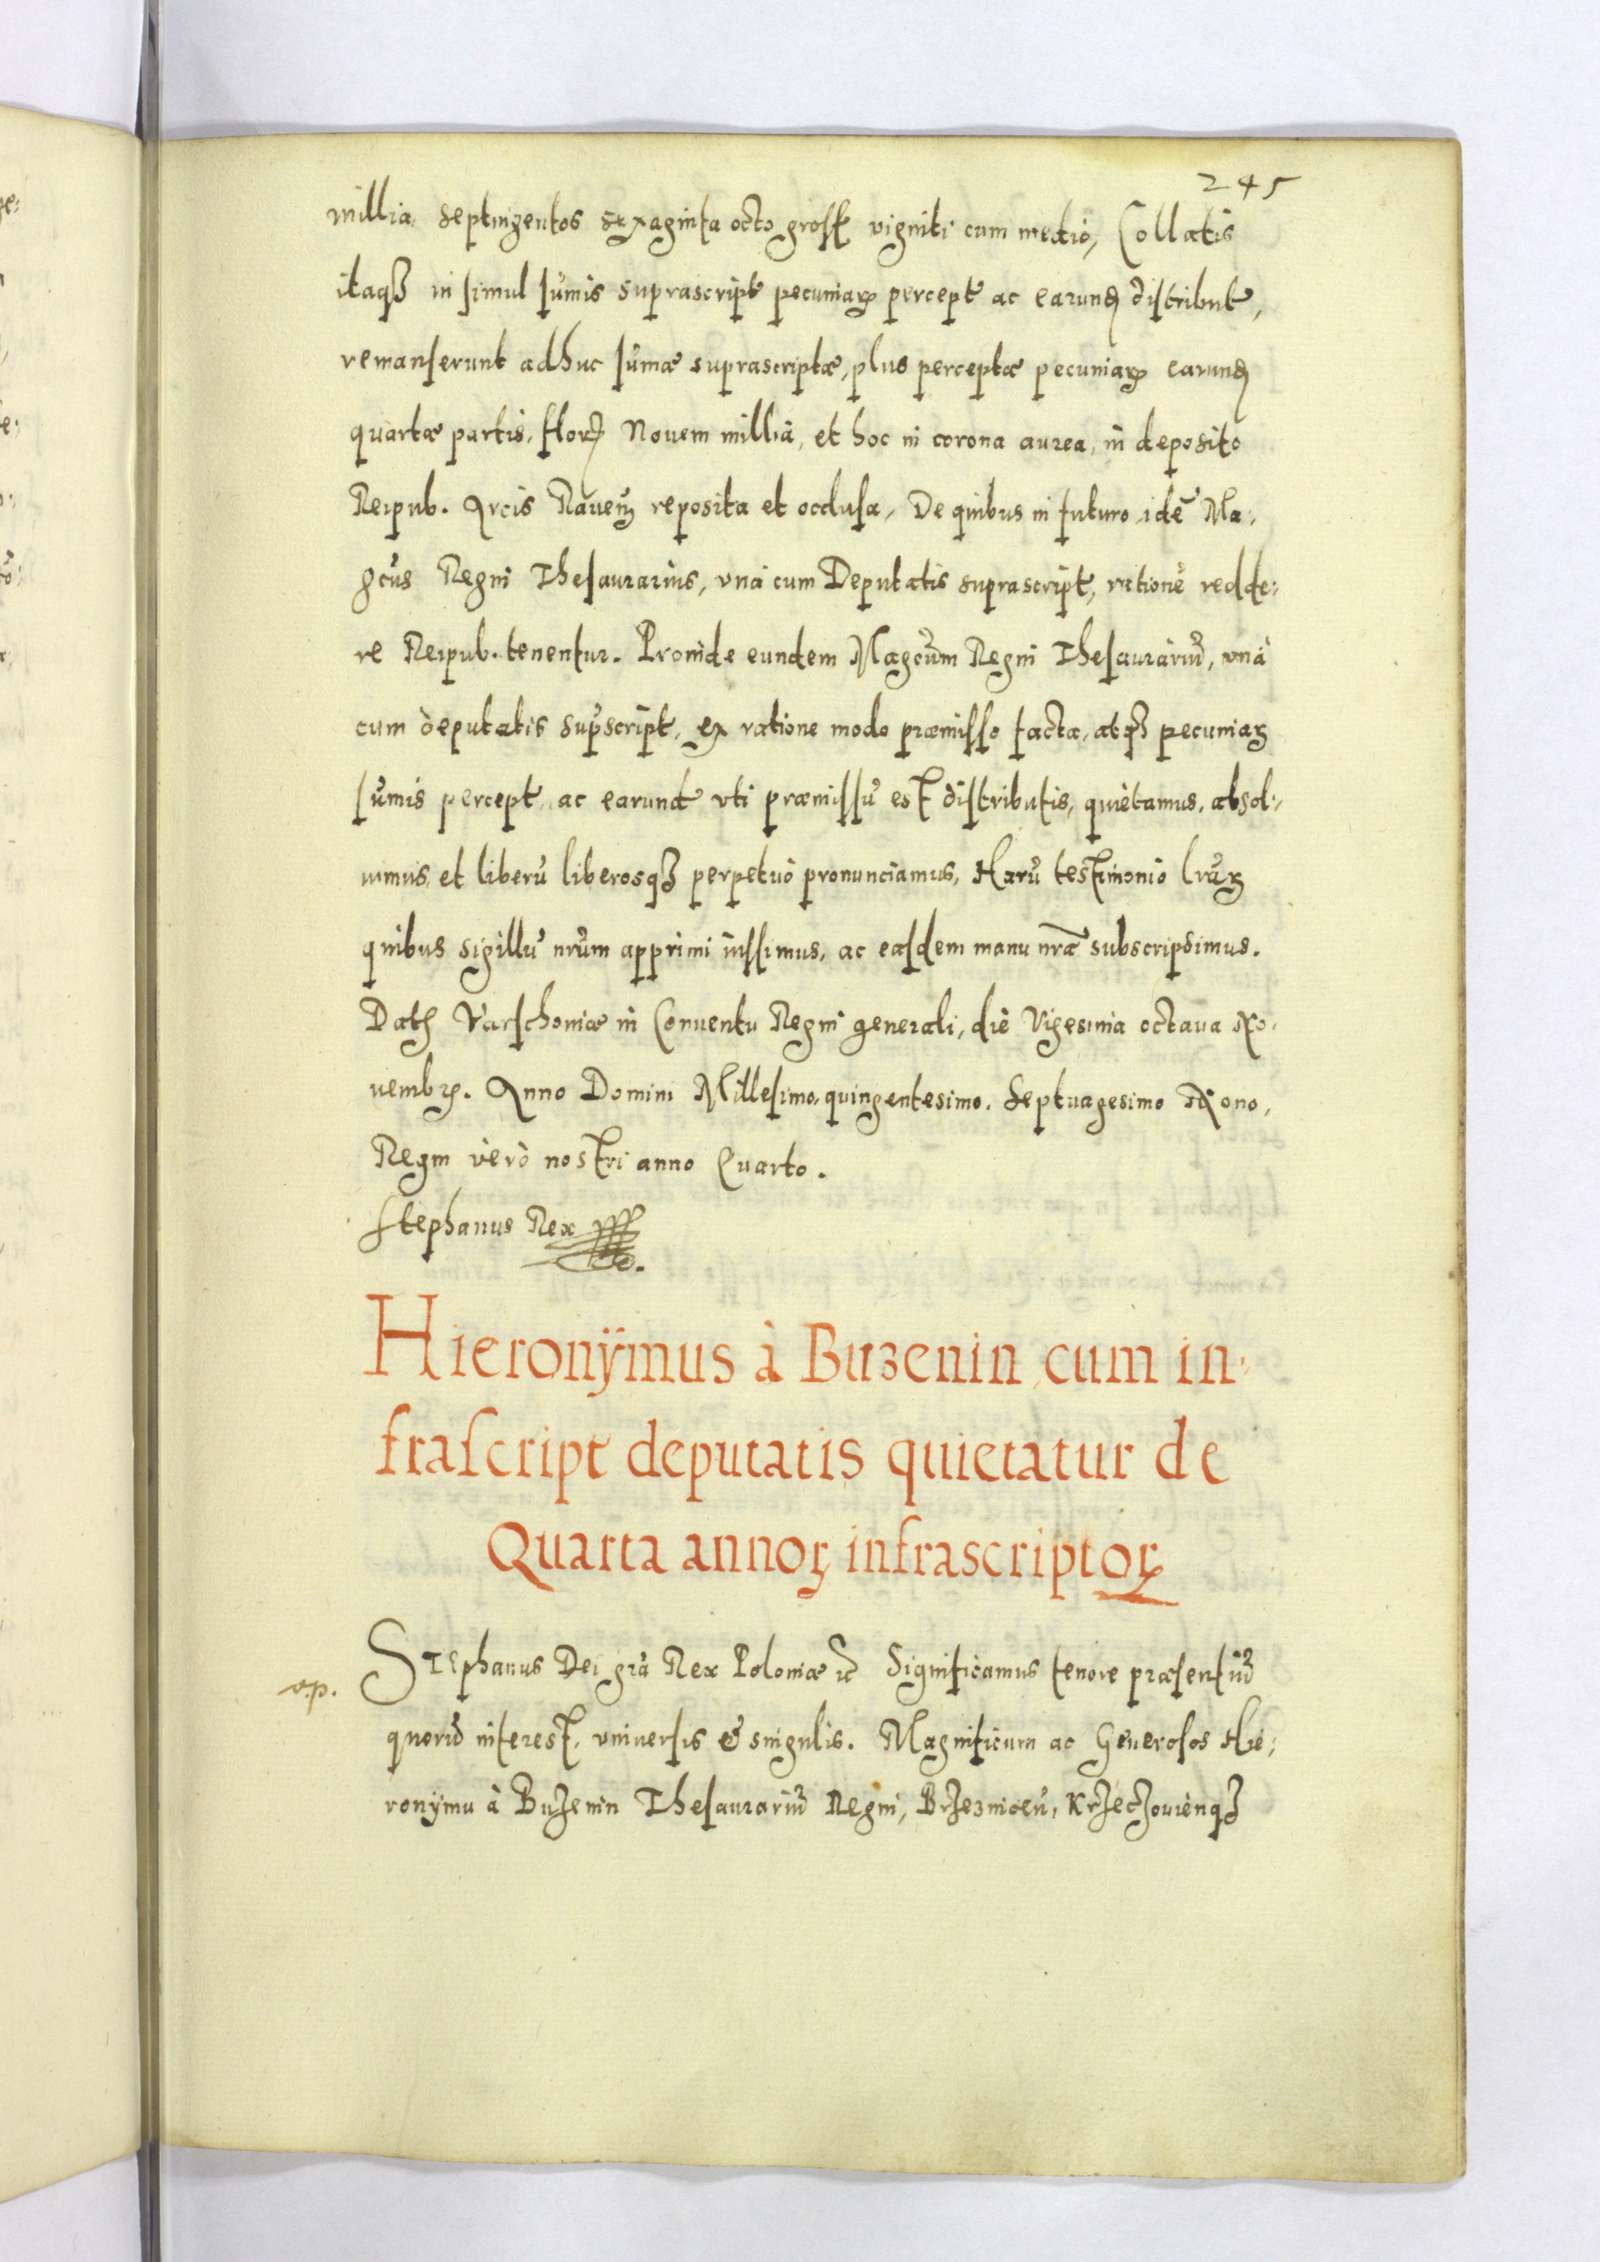 245
millia, septingentos sexaginta octo gross viginti cum medio, Collatis
itaqȝ in simul sūmis suprascript pecuniaꝝ percept ac earund distribut,
remanserunt adhuc sūmæ suprascriptæ, plus perceptæ pecuniaꝝ earund
quartæ partis, flor Novem millia, et hoc in corona aurea, in deposito
Reipub. Arcis Raven reposita et occlusa, De quibus in futuro idē Ma-
gcūs Regni Thesaurarius, unà cum Deputatis suprascript, rationē redde-
re Reipub. tenentur. Proinde eundem Magcūm Regni Thesaurariū, unà
cum deputatis supscript, ex ratione modo præmisso facta, atqȝ pecuniaꝝ
sūmis percept, ac earund uti præmissū est distributis, quietamus, absol-
uimus, et liberū liberosqȝ perpetuò pronunciamus, Harū testimonio lrāꝝ
quibus sigillū nrūm apprimi iussimus, ac easdem manu nrā subscripsimus.
Dat Varschoviæ in Conventu Regni generali, die Vigesima octava No-
vembꝝ. Anno Domini Millesimo, quingentesimo, Septuagesimo Nono,
Regni verò nostri anno Quarto.
Stephanus Rex
Hieronÿmus à Buzenin cum in-
frascript deputatis quietatur de
Quarta annoꝝ infrascriptoꝝ
v.p.
Stephanus Dei grā Rex Poloniæ Significamus tenore præsentiū
quorū interest, universis & singulis. Magnificum ac Generosos Hie-
ronÿmū à Buzenin Thesaurariū Regni, Brzeznicen, Krzeczovienqȝ